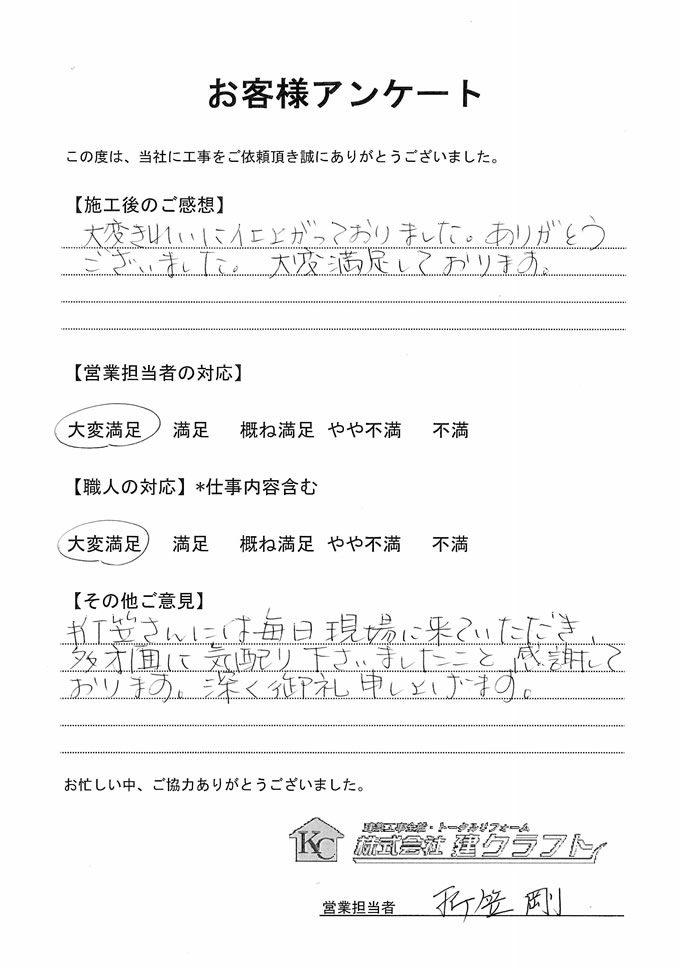 お客様アンケート
この度は、当社に工事をご依頼頂き誠にありがとうございました。
【施工後のご感想】
大変きれいに仕上がっておりました。ありがとう
ございました。 大変満足しております。
【営業担当者の対応】
大変満足 満足 概ね満足 やや不満 不満
【職人の対応】*仕事内容含む
大変満足 満足 概ね満足 やや不満 不満
【その他ご意見】
折笠さんには毎日現場に来ていただき、
多方面に気配り下さいましたこと感謝して
おります。深く御礼申し上げます。
お忙しい中、ご協力ありがとうございました。
KC
建築工事全般・トータルリフォーム
株式会社 建クラフト
営業担当者 折笠 剛